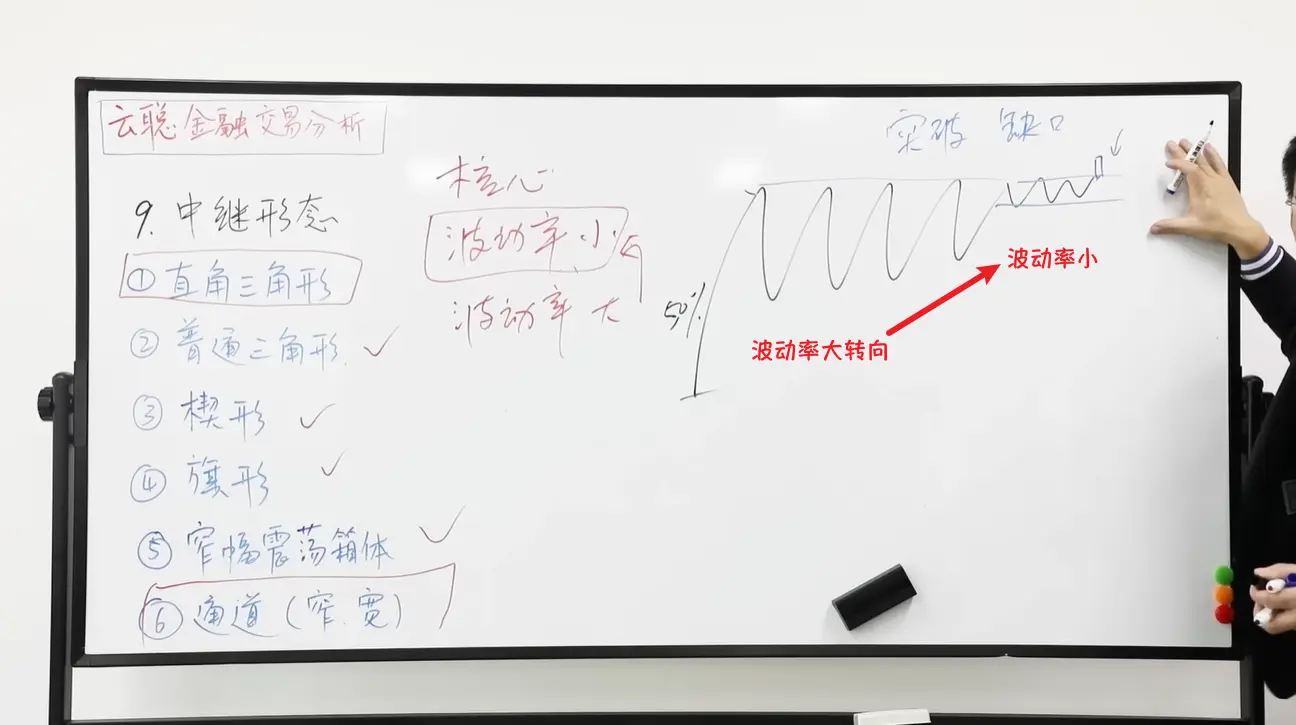 云聪金融交易分析
9. 中继形态
① 直角三角形
② 普通三角形
③ 楔形
④ 旗形
⑤ 窄幅震荡箱体
⑥ 通道（窄、宽）
核心
波动率小
波动率大
突破 缺口
50%
波动率小
波动率大转向